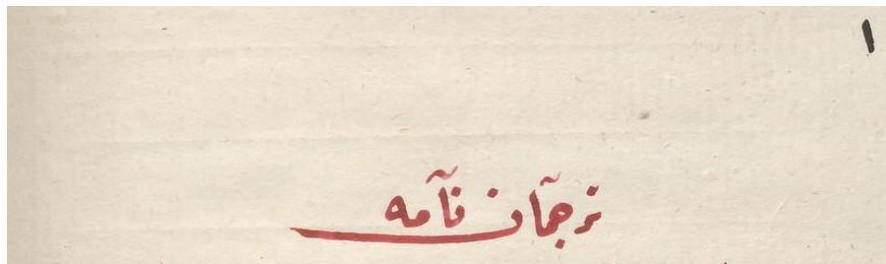 ١
ترجمآن نآمه